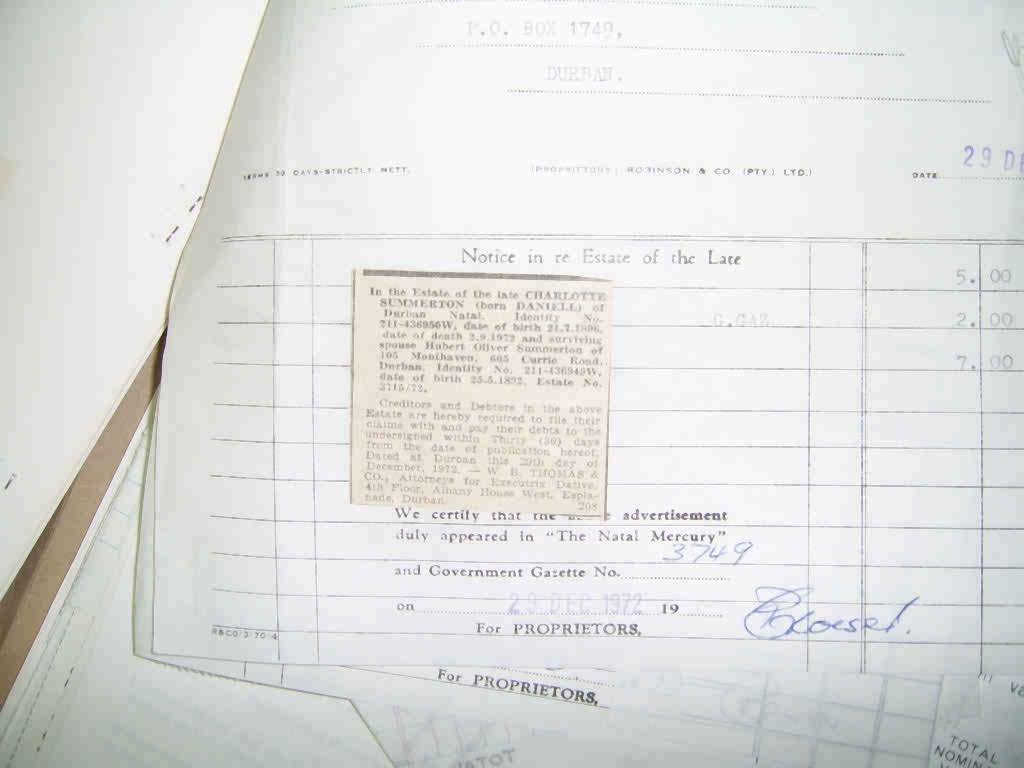 P.O. BOX 1749,
DURBAN.
TERMS 30 DAYS-STRICTLY NETT.
(PROPRIETORS: ROBINSON & CO. (PTY.) LTD.)
DATE
29 DE
Notice in re Estate of the Late
5. 00
G.GAZ.
2. 00
7. 00
In the Estate of the late CHARLOTTE
SUMMERTON (born DANIELL) of
Durban Natal. Identity No.
211-436950W, date of birth 21.7.1896,
date of death 2.9.1972 and surviving
spouse Hubert Oliver Summerton of
105 Monthaven, 605 Currie Road,
Durban, Identity No. 211-436949W,
date of birth 25.5.1892. Estate No.
3715/72.
Creditors and Debtors in the above
Estate are hereby required to file their
claims with and pay their debts to the
undersigned within Thirty (30) days
from the date of publication hereof.
Dated at Durban this 29th day of
December, 1972. — W. B. THOMAS &
CO., Attorneys for Executrix Dative,
4th Floor, Albany House West, Espla-
nade, Durban. 208
We certify that the advertisement
duly appeared in "The Natal Mercury"
3749
and Government Gazette No.
on 29 DEC 1972 19
For PROPRIETORS,
R&CO/3/70/4
For PROPRIETORS,
TOTAL